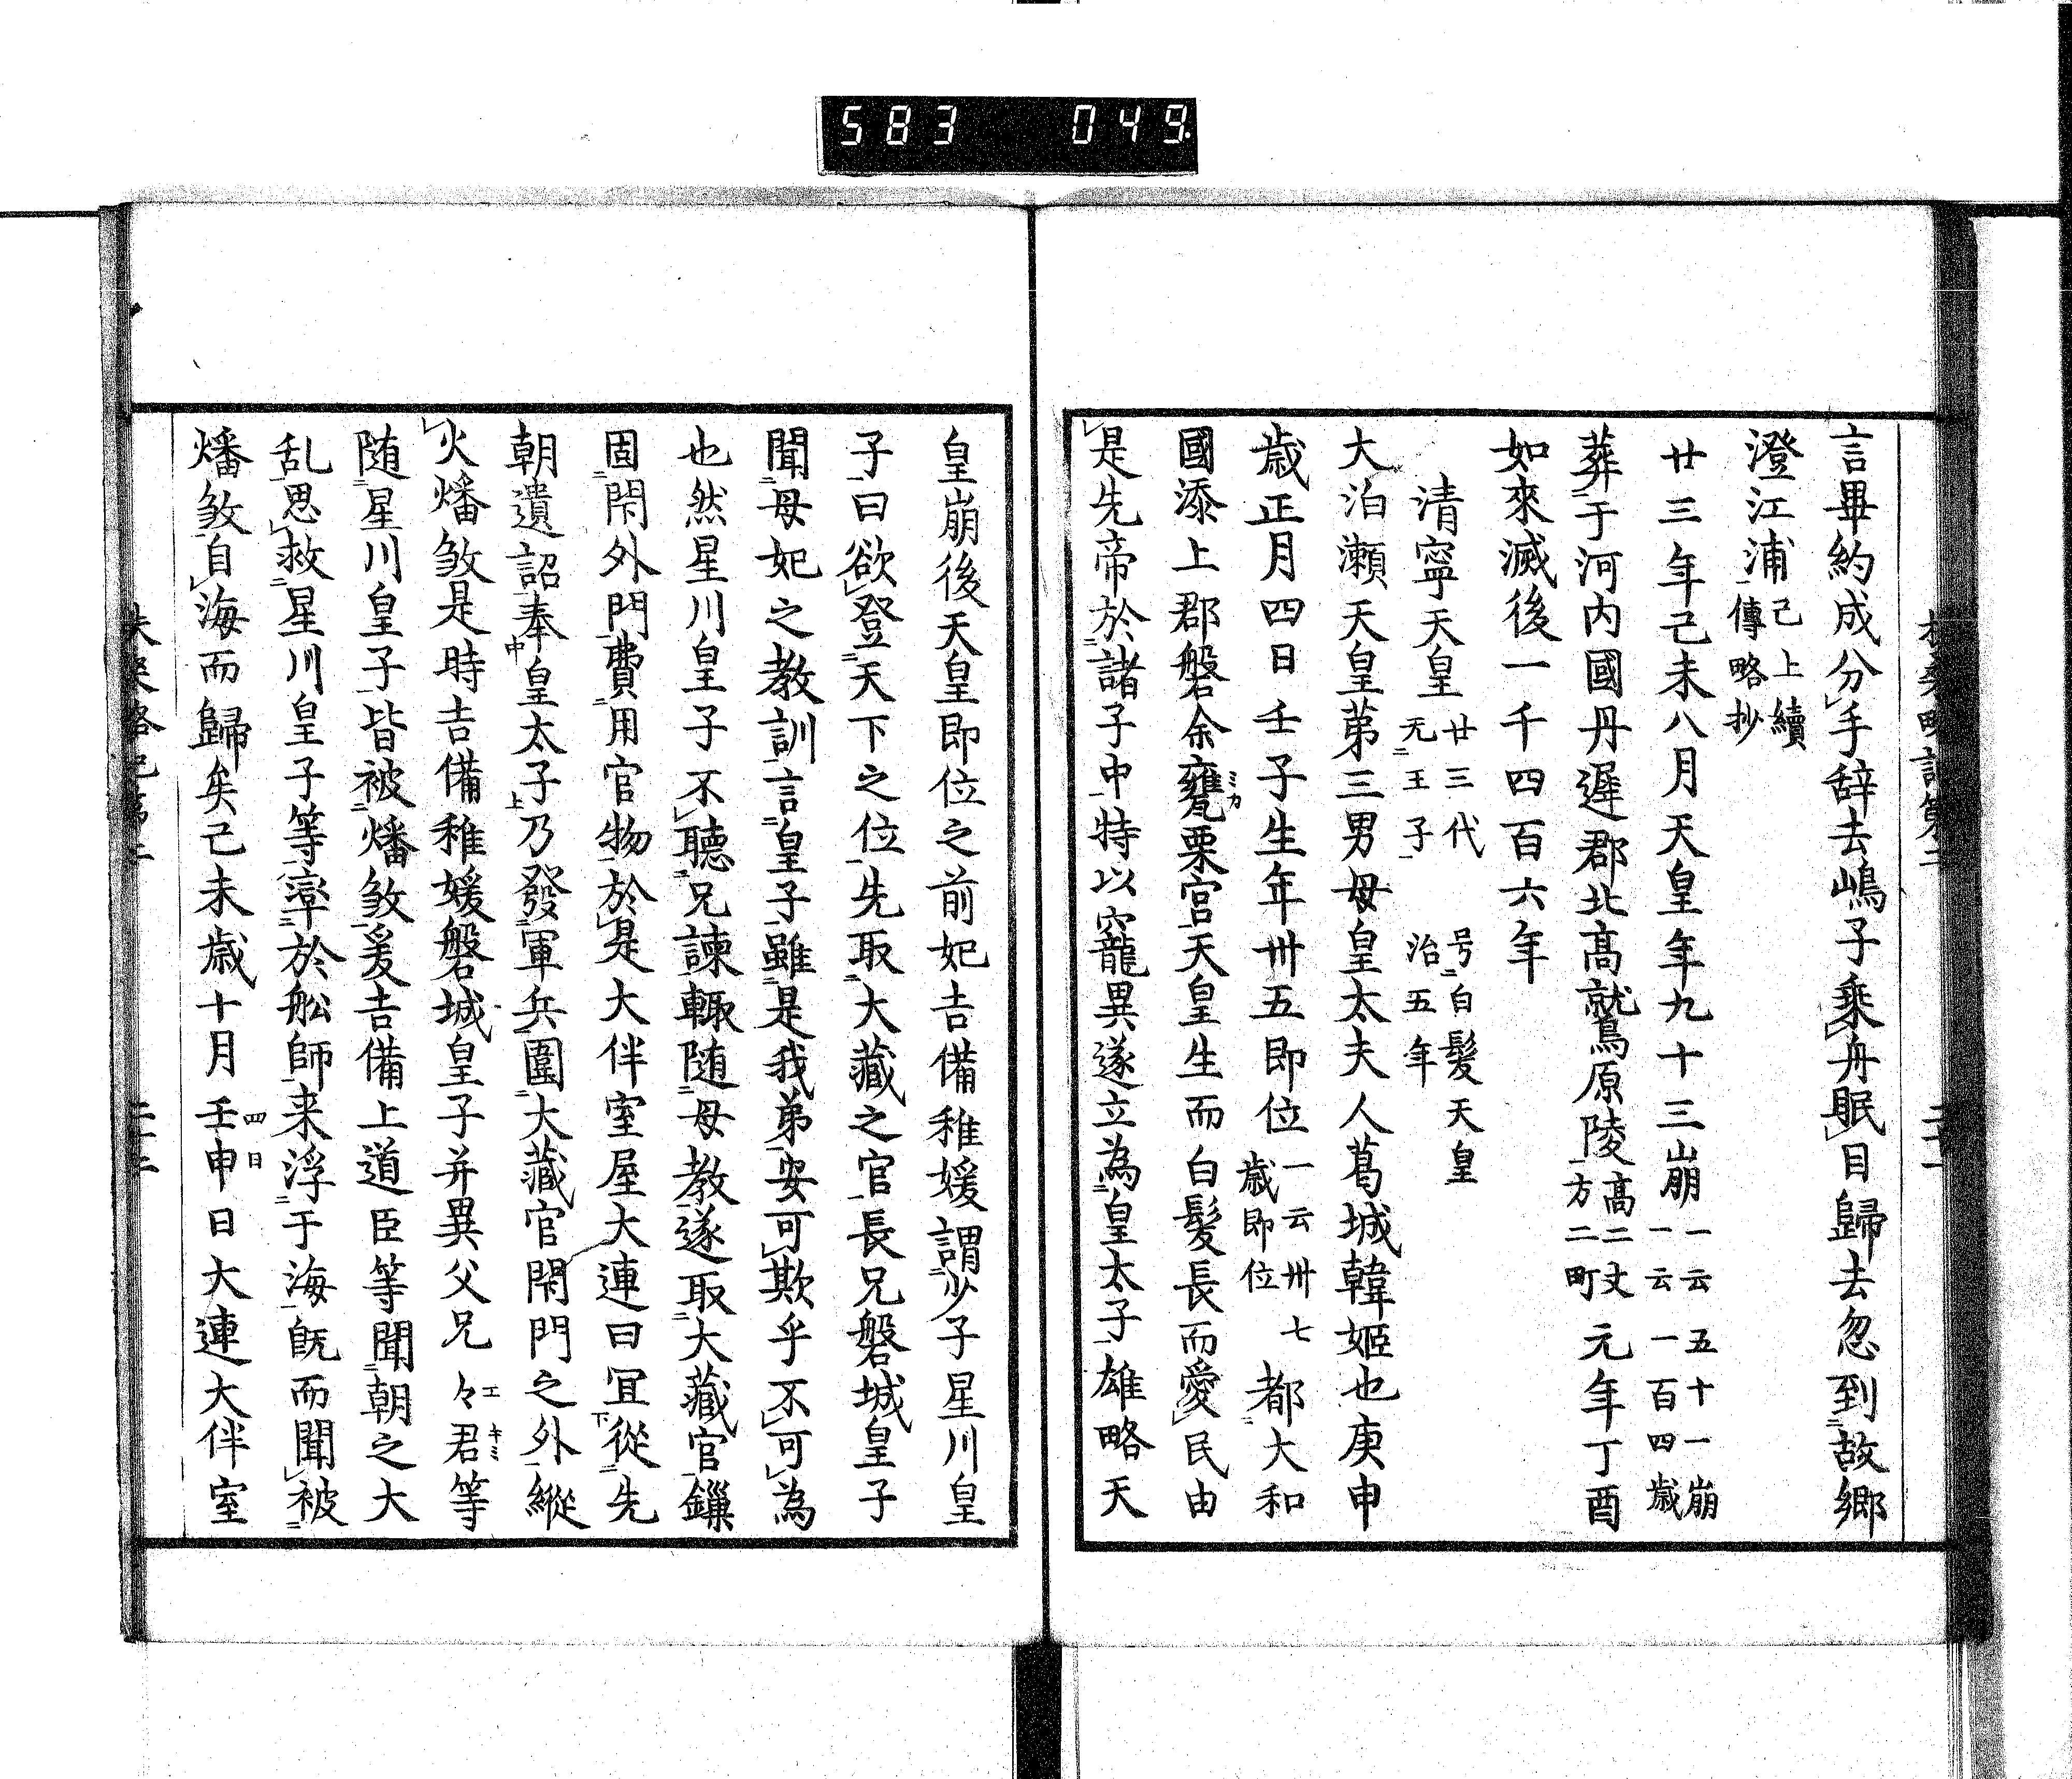 583 049
言畢約成分手辞去嶋子乗舟眠目歸去忽到故郷
澄江浦己上續傳略抄
廿三年己未八月天皇年九十三崩一云五十一崩一云一百四歳
葬于河内國丹遲郡北高就鳥原陵高二丈方二町元年丁酉
如來滅後一千四百六年
清寧天皇廿三代无王子 号白髮天皇治五年
大泊瀬天皇第三男母皇太夫人葛城韓姫也庚申
歳正月四日壬子生年卅五即位一云卅七歳即位都大和
國添上郡磐余甕栗宮天皇生而白髮長而愛民由
是先帝於諸子中特以寵異遂立為皇太子雄略天
皇崩後天皇即位之前妃吉備稚媛謂少子星川皇
子曰欲登天下之位先取大藏之官長兄磐城皇子
聞母妃之教訓言皇子雖是我弟安可欺乎不可為
也然星川皇子不聽兄諫輙随母教遂取大藏官鏁
固閇外門費用官物於是大伴室屋大連曰冝從先
朝遺詔奉皇太子乃發軍兵圍大藏官閇門之外縱
火燔煞是時吉備稚媛磐城皇子并異父兄々君等
随星川皇子皆被燔煞爰吉備上道臣等聞朝之大
乱思救星川皇子等率於舩師来浮于海既而聞被
燔煞自海而歸矣己未歳十月壬申四日日大連大伴室